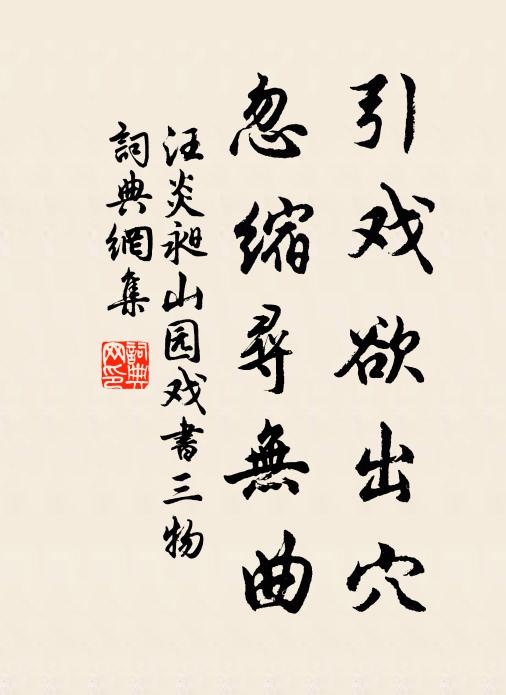 引戏欲出穴
忽缩寻無曲
汪炎昶山园戏書三物
詞典網集
詞典網印